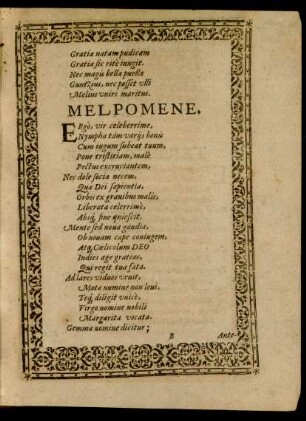 Gratia natam pudicam
Gratia sic ritè iungit.
Nec magis bella puella
Guntzius, nec posset vlli
Melius vniri maritus.
MELPOMENE.
ERgò, vir celeberrime,
Nympha tàm variis bonis
Cum iugum subeat tuum,
Pone tristitiam, malè
Pectus excruciantem,
Nec dole sociæ necem,
Quæ Dei sapientia,
Orbis ex grauibus malis,
Liberata celerrimè,
Absq́; fine quiescit.
Mente sed noua gaudia,
Ob nouam cape coniugem,
Atq́; Cœlicolum DEO
Indies age gratias,
Qui regit tua fata.
Ad lares viduos venit,
Mota numine non leui,
Teq́; diligit vnicè,
Virgo nomine nobili
Margarita vocata.
Gemma nomine dicitur;
B Ante-